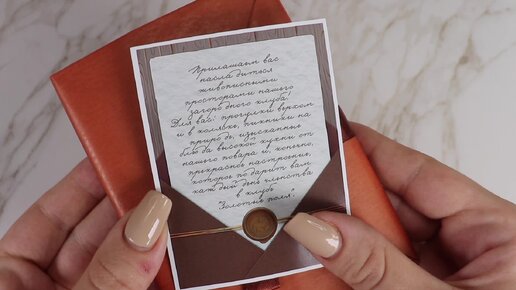 Приглашаем вас
насладиться
живописными
просторами нашего
загородного клуба!
Для вас: прогулки верхом
и в коляске, пикники на
природе, изысканные
блюда высокой кухни от
нашего повара и, конечно,
прекрасное настроение,
которое подарит вам
каждый день членства
в клубе
"Золотые поля".